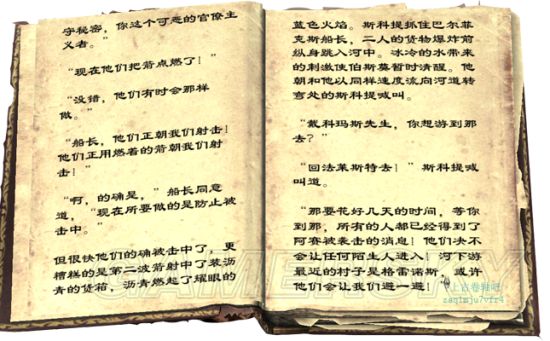 守秘密，你这个可恶的官僚主
义者。”
“现在他们把箭点燃了！”
“没错，他们有时会那样
做。”
“船长，他们正朝我们射击！
他们正用燃着的箭朝我们射
击！”
“啊，的确是，”船长同意
道，“现在所要做的是防止被
击中。”
但很快他们的确被击中了，更
糟糕的是第二波箭射中了装沥
青的货箱，沥青燃起了耀眼的
蓝色火焰。斯科提抓住巴尔菲
克斯船长，二人的货物爆炸前
纵身跳入河中。冰冷的水带来
的刺激使伯斯葵暂时清醒。他
朝和他以同样速度流向河道转
弯处的斯科提喊叫。
“戴科玛斯先生，你想游到那
去？”
“回法莱斯特去！”斯科提喊
叫道。
“那要花好几天的时间，等你
到那，所有的人都已经得到了
阿赛被袭击的消息！他们决不
会让任何陌生人进入，河下游
最近的村子是格雷诺斯，或许
他们会让我们避一避！”
上古卷轴吧
zaq1mju7vfr4
GAMERSKY